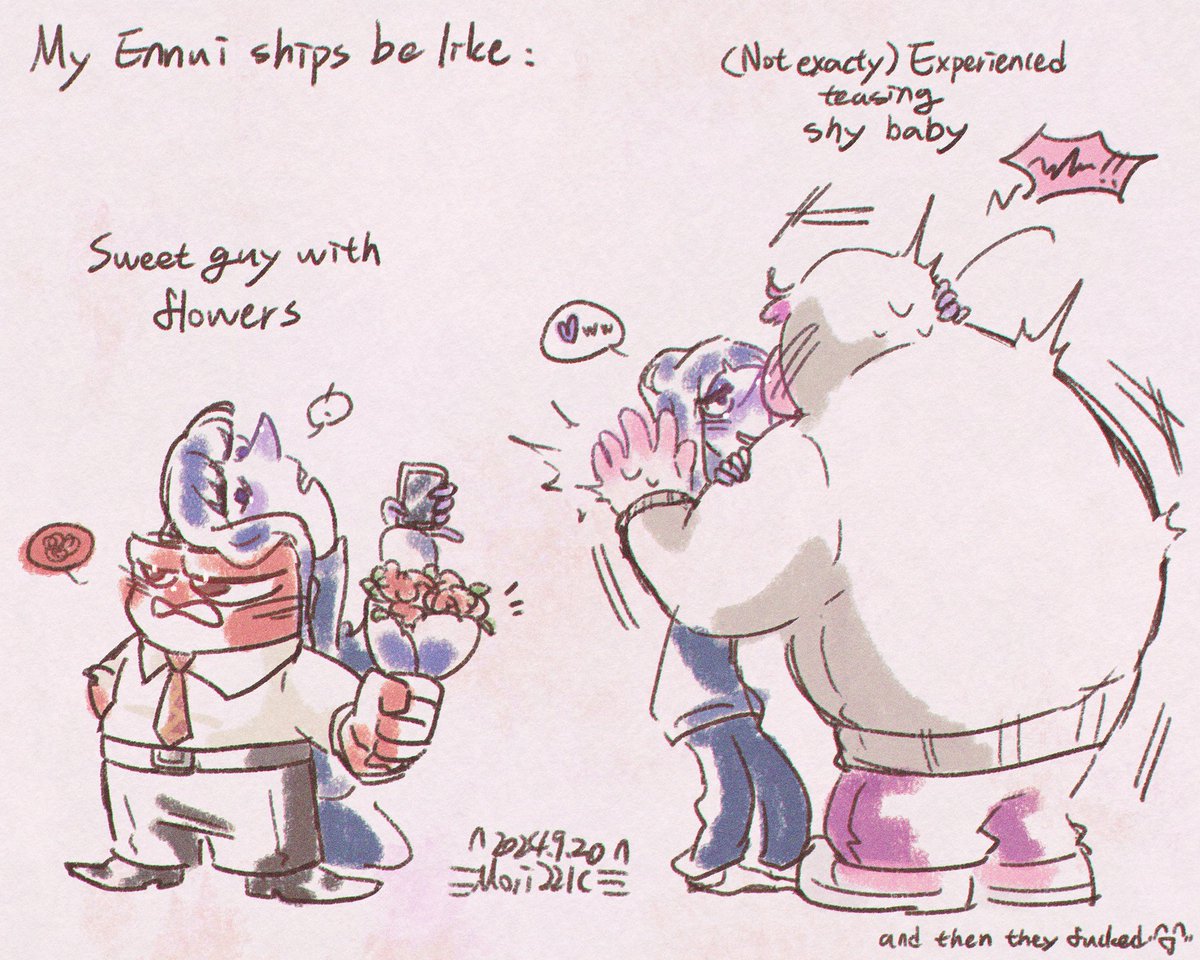 My Ennui ships be like :
(Not exacty) Experienced
teasing
shy baby
Sweet guy with
flowers
ww
2024.9.20
Moji221C
and then they fucked